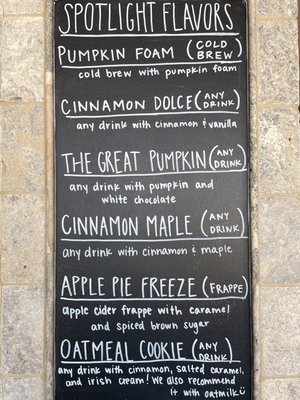 SPOTLIGHT FLAVORS
PUMPKIN FOAM (COLD BREW)
cold brew with pumpkin foam
CINNAMON DOLCE (ANY DRINK)
any drink with cinnamon & vanilla
THE GREAT PUMPKIN (ANY DRINK)
any drink with pumpkin and
white chocolate
CINNAMON MAPLE (ANY DRINK)
any drink with cinnamon & maple
APPLE PIE FREEZE (FRAPPE)
apple cider frappe with caramel
and spiced brown sugar
OATMEAL COOKIE (ANY DRINK)
any drink with cinnamon, salted caramel,
and irish cream! We also recommend
it with oatmilk